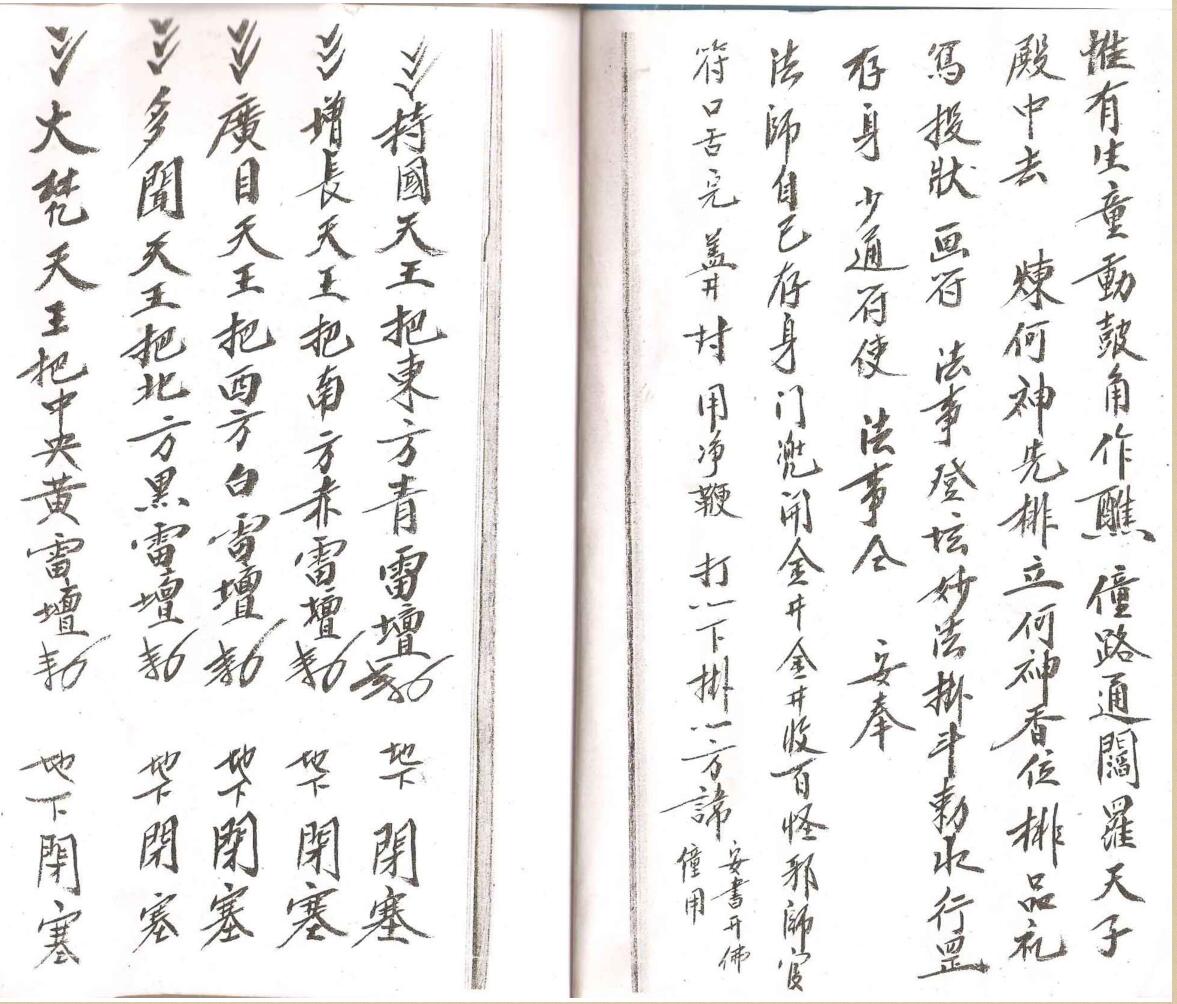 惟有生童動鼓角作醮 僮路通閻羅天子
殿中去 煉何神先排立何神香位排品礼
寫投狀画符 法事登坛妙法掛斗勅水行罡
存身少通符使 法事仝 安奉
法師自已存身门兠開金井金井收百怪邪師官
符口舌完 盖井封 用净鞭 打八下掛八方諱
安書开佛
僮用
持國天王把東方青雷壇 地下閉塞
增長天王把南方赤雷壇 地下閉塞
廣目天王把西方白雷壇 地下閉塞
多聞天王把北方黑雷壇 地下閉塞
大梵天王把中央黃雷壇 地下閉塞